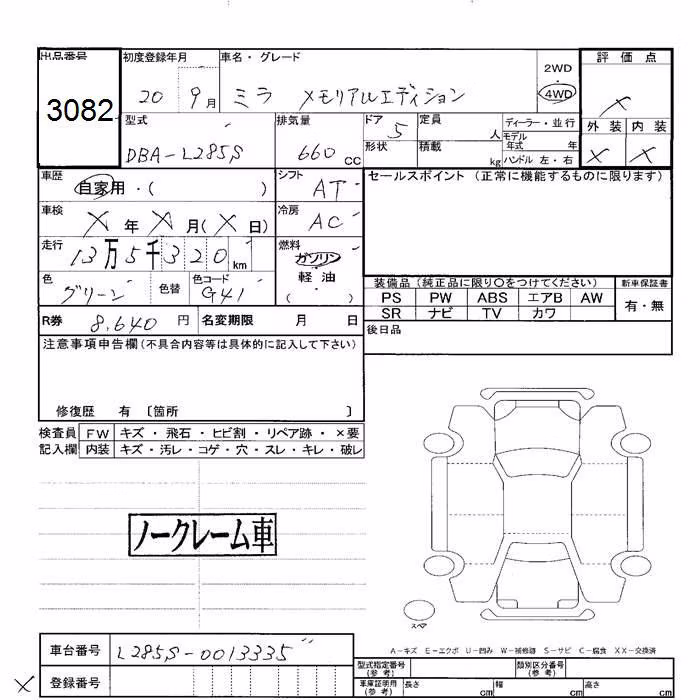 出品番号 初度登録年月 車名・グレード 評価点
3082 20 9月 ミラ メモリアルエディション 2WD
4WD
型式 排気量 ドア 定員 ディーラー・並行 外装 内装
DBA-L285S 660cc 5 人 モデル年式 年
形状 積載 kg ハンドル 左・右 X X
車歴 自家用・( ) シフト AT セールスポイント (正常に機能するものに限ります)
車検 X年X月(X日) 冷房 AC
走行 13万5千320km 燃料 ガソリン・軽油( )
色 グリーン 色替 色コード G41
装備品 (純正品に限り○をつけてください) 新車保証書
PS PW ABS エアB AW 有・無
SR ナビ TV カワ
R券 8,640円 名変期限 月 日 後日品
注意事項申告欄(不具合内容等は具体的に記入して下さい)
修復歴 有 〔箇所 〕
検査員 FW キズ・飛石・ヒビ割・リペア跡・×要
記入欄 内装 キズ・汚レ・コゲ・穴・スレ・キレ・破レ
ノークレーム車
スペア
A-キズ E-エクボ U-凹み W-補修跡 S-サビ C-腐食 XX-交換済
車台番号 L285S-0013335
X 登録番号
型式指定番号(参考) 類別区分番号(参考)
車庫証明用(参考) 長さ cm 幅 cm 高さ cm